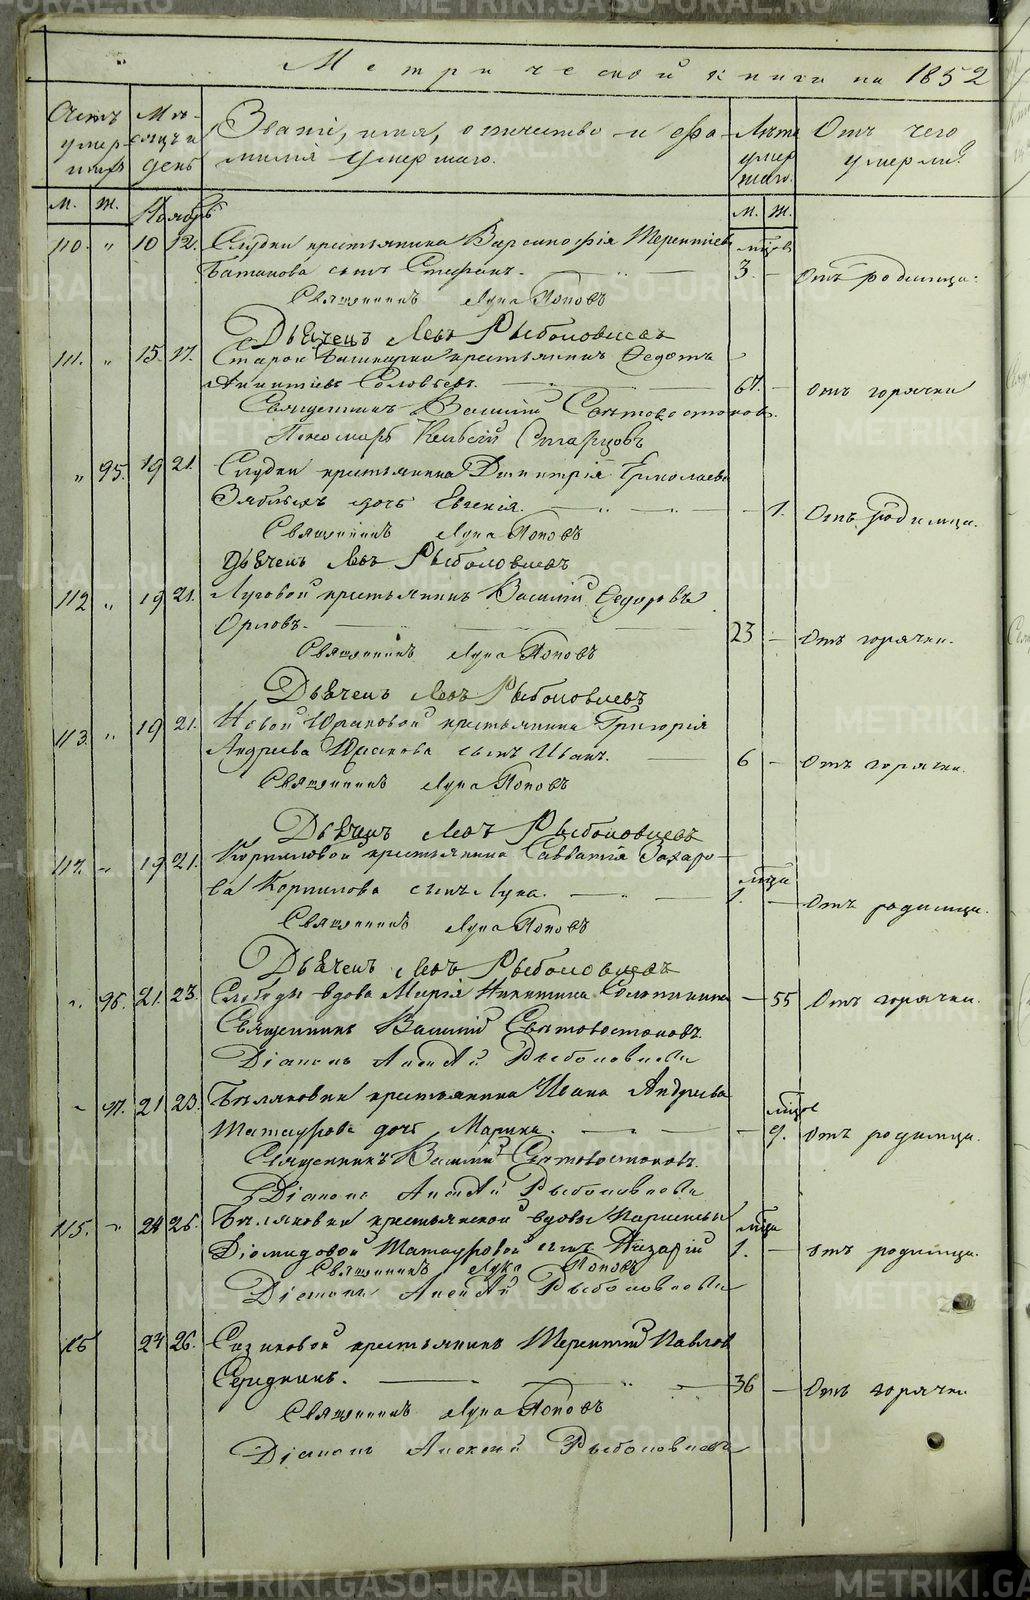 Метрической книги на 1852
Счетъ умершихъ
Мѣсяцъ и день
Званіе, имя, отчество и фамилія умершаго.
Лѣта умершаго.
Отъ чего умерли?
м. ж. Ноябрь м. ж.
110. " 10 12. Слудки крестьянина Терентіева мѣсяцовъ
сынъ Стефанъ. 3. — Отъ родимца.
Священникъ Лука Поповъ
Дьячекъ Левъ Рыболовлевъ
111. " 15. 17. крестьянинъ Федотъ
Соловьевъ. 67. — отъ горячки
Священникъ Василій Свѣтовостоковъ.
Пономарь Старцовъ
" 95. 19 21. Слудки крестьянина Димитрія
дочь Евгенія. — 1. Отъ родимца.
Священникъ Лука Поповъ
Дьячекъ Левъ Рыболовлевъ
112 " 19 21. Луговой крестьянинъ Василій Федоровъ
Орловъ. 23 — Отъ горячки.
Священникъ Лука Поповъ
Дьячекъ Левъ Рыболовлевъ
113. " 19 21. Новой крестьянина Григорія
Андреева сынъ Иванъ. 6 — Отъ горячки.
Священникъ Лука Поповъ
Дьячекъ Левъ Рыболовлевъ
114. " 19 21. Корниловой крестьянина Савватія Захаро-
ва Корнилова сынъ Лука. 1. — Отъ родимца.
Священникъ Лука Поповъ
Дьячекъ Левъ Рыболовлевъ
" 96. 21. 23. Слободы вдова Марія Никитина — 55 Отъ горячки.
Священникъ Василій Свѣтовостоковъ.
Діаконъ Алексѣй Рыболовлевъ
" 97. 21 23. Беляковки крестьянина Ивана Андреева мѣсяцовъ
Татаурова дочь Марина. — 9. Отъ родимца.
Священникъ Василій Свѣтовостоковъ.
Діаконъ Алексѣй Рыболовлевъ
115. " 24 26. Беляковки крестьянской вдовы
Діомидовой Татауровой сынъ Назарій 1. — отъ родимца.
Священникъ Лука Поповъ
Діаконъ Алексѣй Рыболовлевъ
116 24 26. крестьянинъ Терентій Павловъ
Середкинъ. 36 — Отъ горячки
Священникъ Лука Поповъ
Діаконъ Алексѣй Рыболовлевъ
METRIKI.GASO-URAL.RU